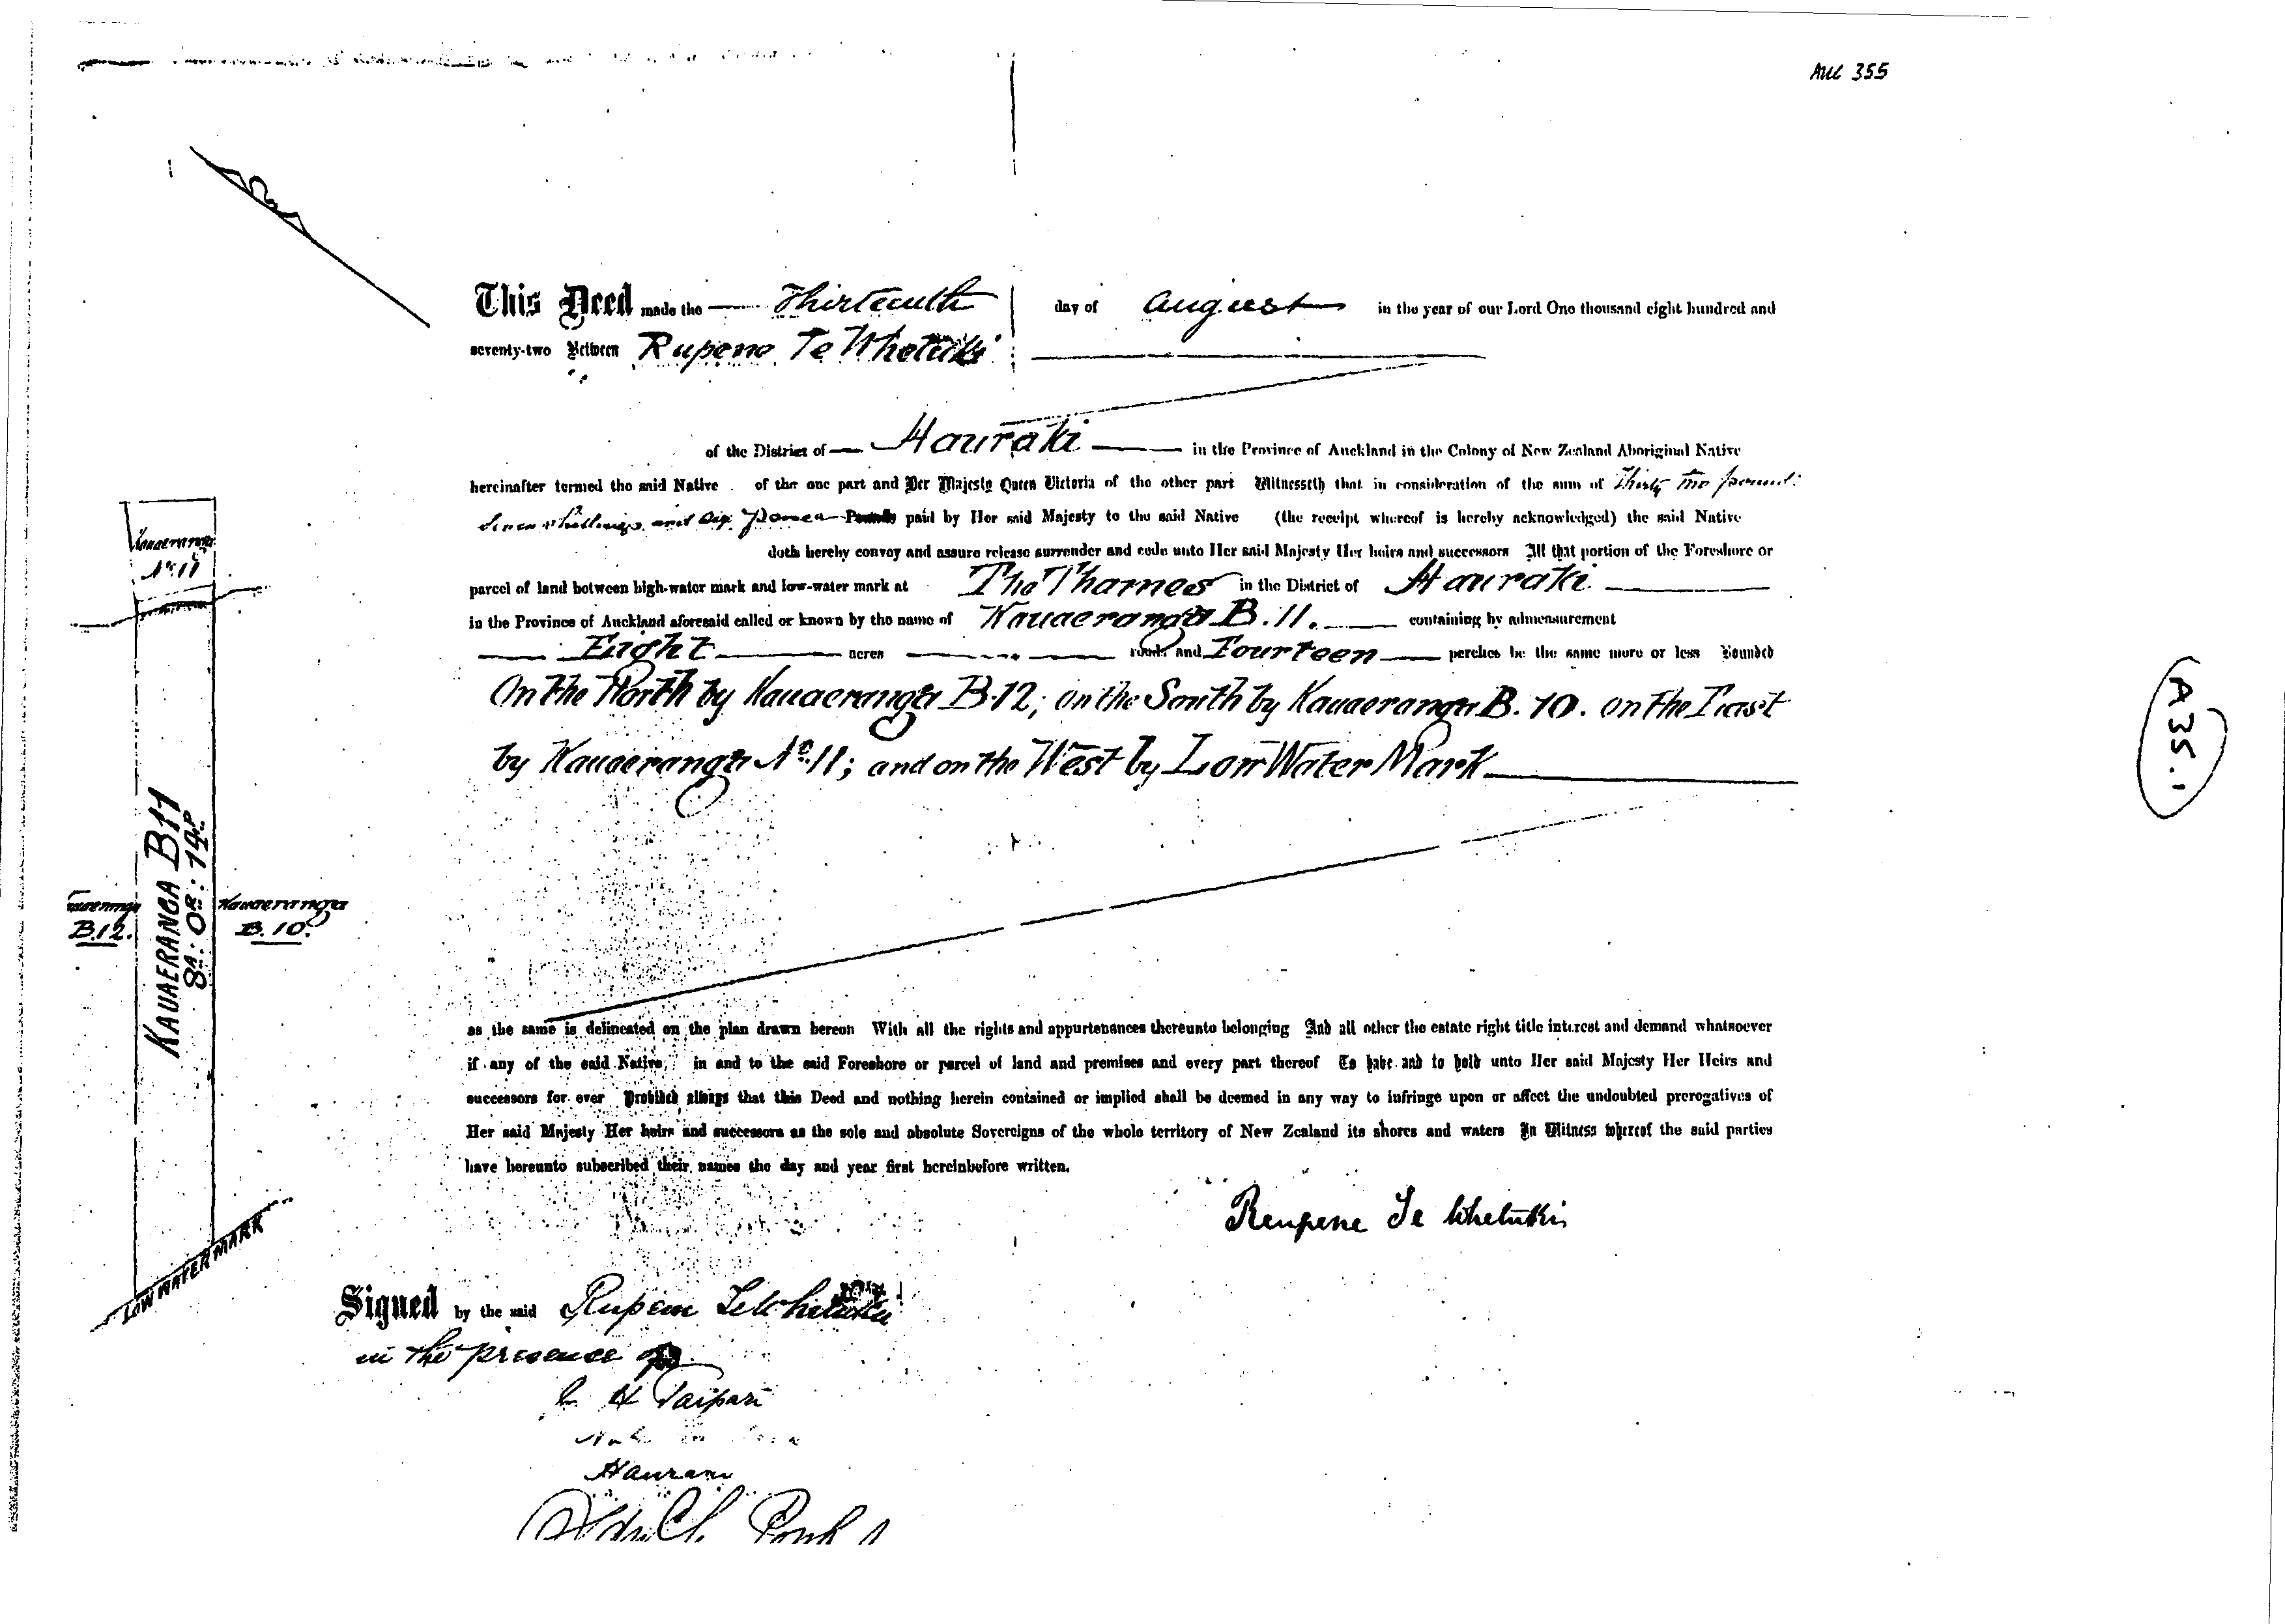 AUC 355
This Deed made the Thirteenth day of August in the year of our Lord One thousand eight hundred and
seventy-two Between Rupene Te Whetuki
of the District of Hauraki in the Province of Auckland in the Colony of New Zealand Aboriginal Native
hereinafter termed the said Native of the one part and Her Majesty Queen Victoria of the other part Witnesseth that in consideration of the sum of Thirty two pounds
seven shillings and six pence Pounds paid by Her said Majesty to the said Native (the receipt whereof is hereby acknowledged) the said Native
doth hereby convey and assure release surrender and cede unto Her said Majesty Her heirs and successors All that portion of the Foreshore or
parcel of land between high-water mark and low-water mark at The Thames in the District of Hauraki
in the Province of Auckland aforesaid called or known by the name of Kauaeranga B.11. containing by admeasurement
Eight acres roods and Fourteen perches be the same more or less Bounded
On the North by Kauaeranga B.12; on the South by Kauaeranga B.10. on the East
by Kauaeranga No. 11; and on the West by Low Water Mark
as the same is delineated on the plan drawn hereon With all the rights and appurtenances thereunto belonging And all other the estate right title interest and demand whatsoever
if any of the said Native in and to the said Foreshore or parcel of land and premises and every part thereof To have and to hold unto Her said Majesty Her Heirs and
successors for ever Provided always that this Deed and nothing herein contained or implied shall be deemed in any way to infringe upon or affect the undoubted prerogatives of
Her said Majesty Her heirs and successors as the sole and absolute Sovereigns of the whole territory of New Zealand its shores and waters In Witness whereof the said parties
have hereunto subscribed their names the day and year first hereinbefore written.
Reupene Te Whetuki
Signed by the said Rupene Te Whetuki
in the presence of
H Taipari
Kauaeranga
No. 11
KAUAERANGA B11
8A: 0R: 14P
Kauaeranga
B.12.
Kauaeranga
B.10.
LOW WATER MARK
A35.1